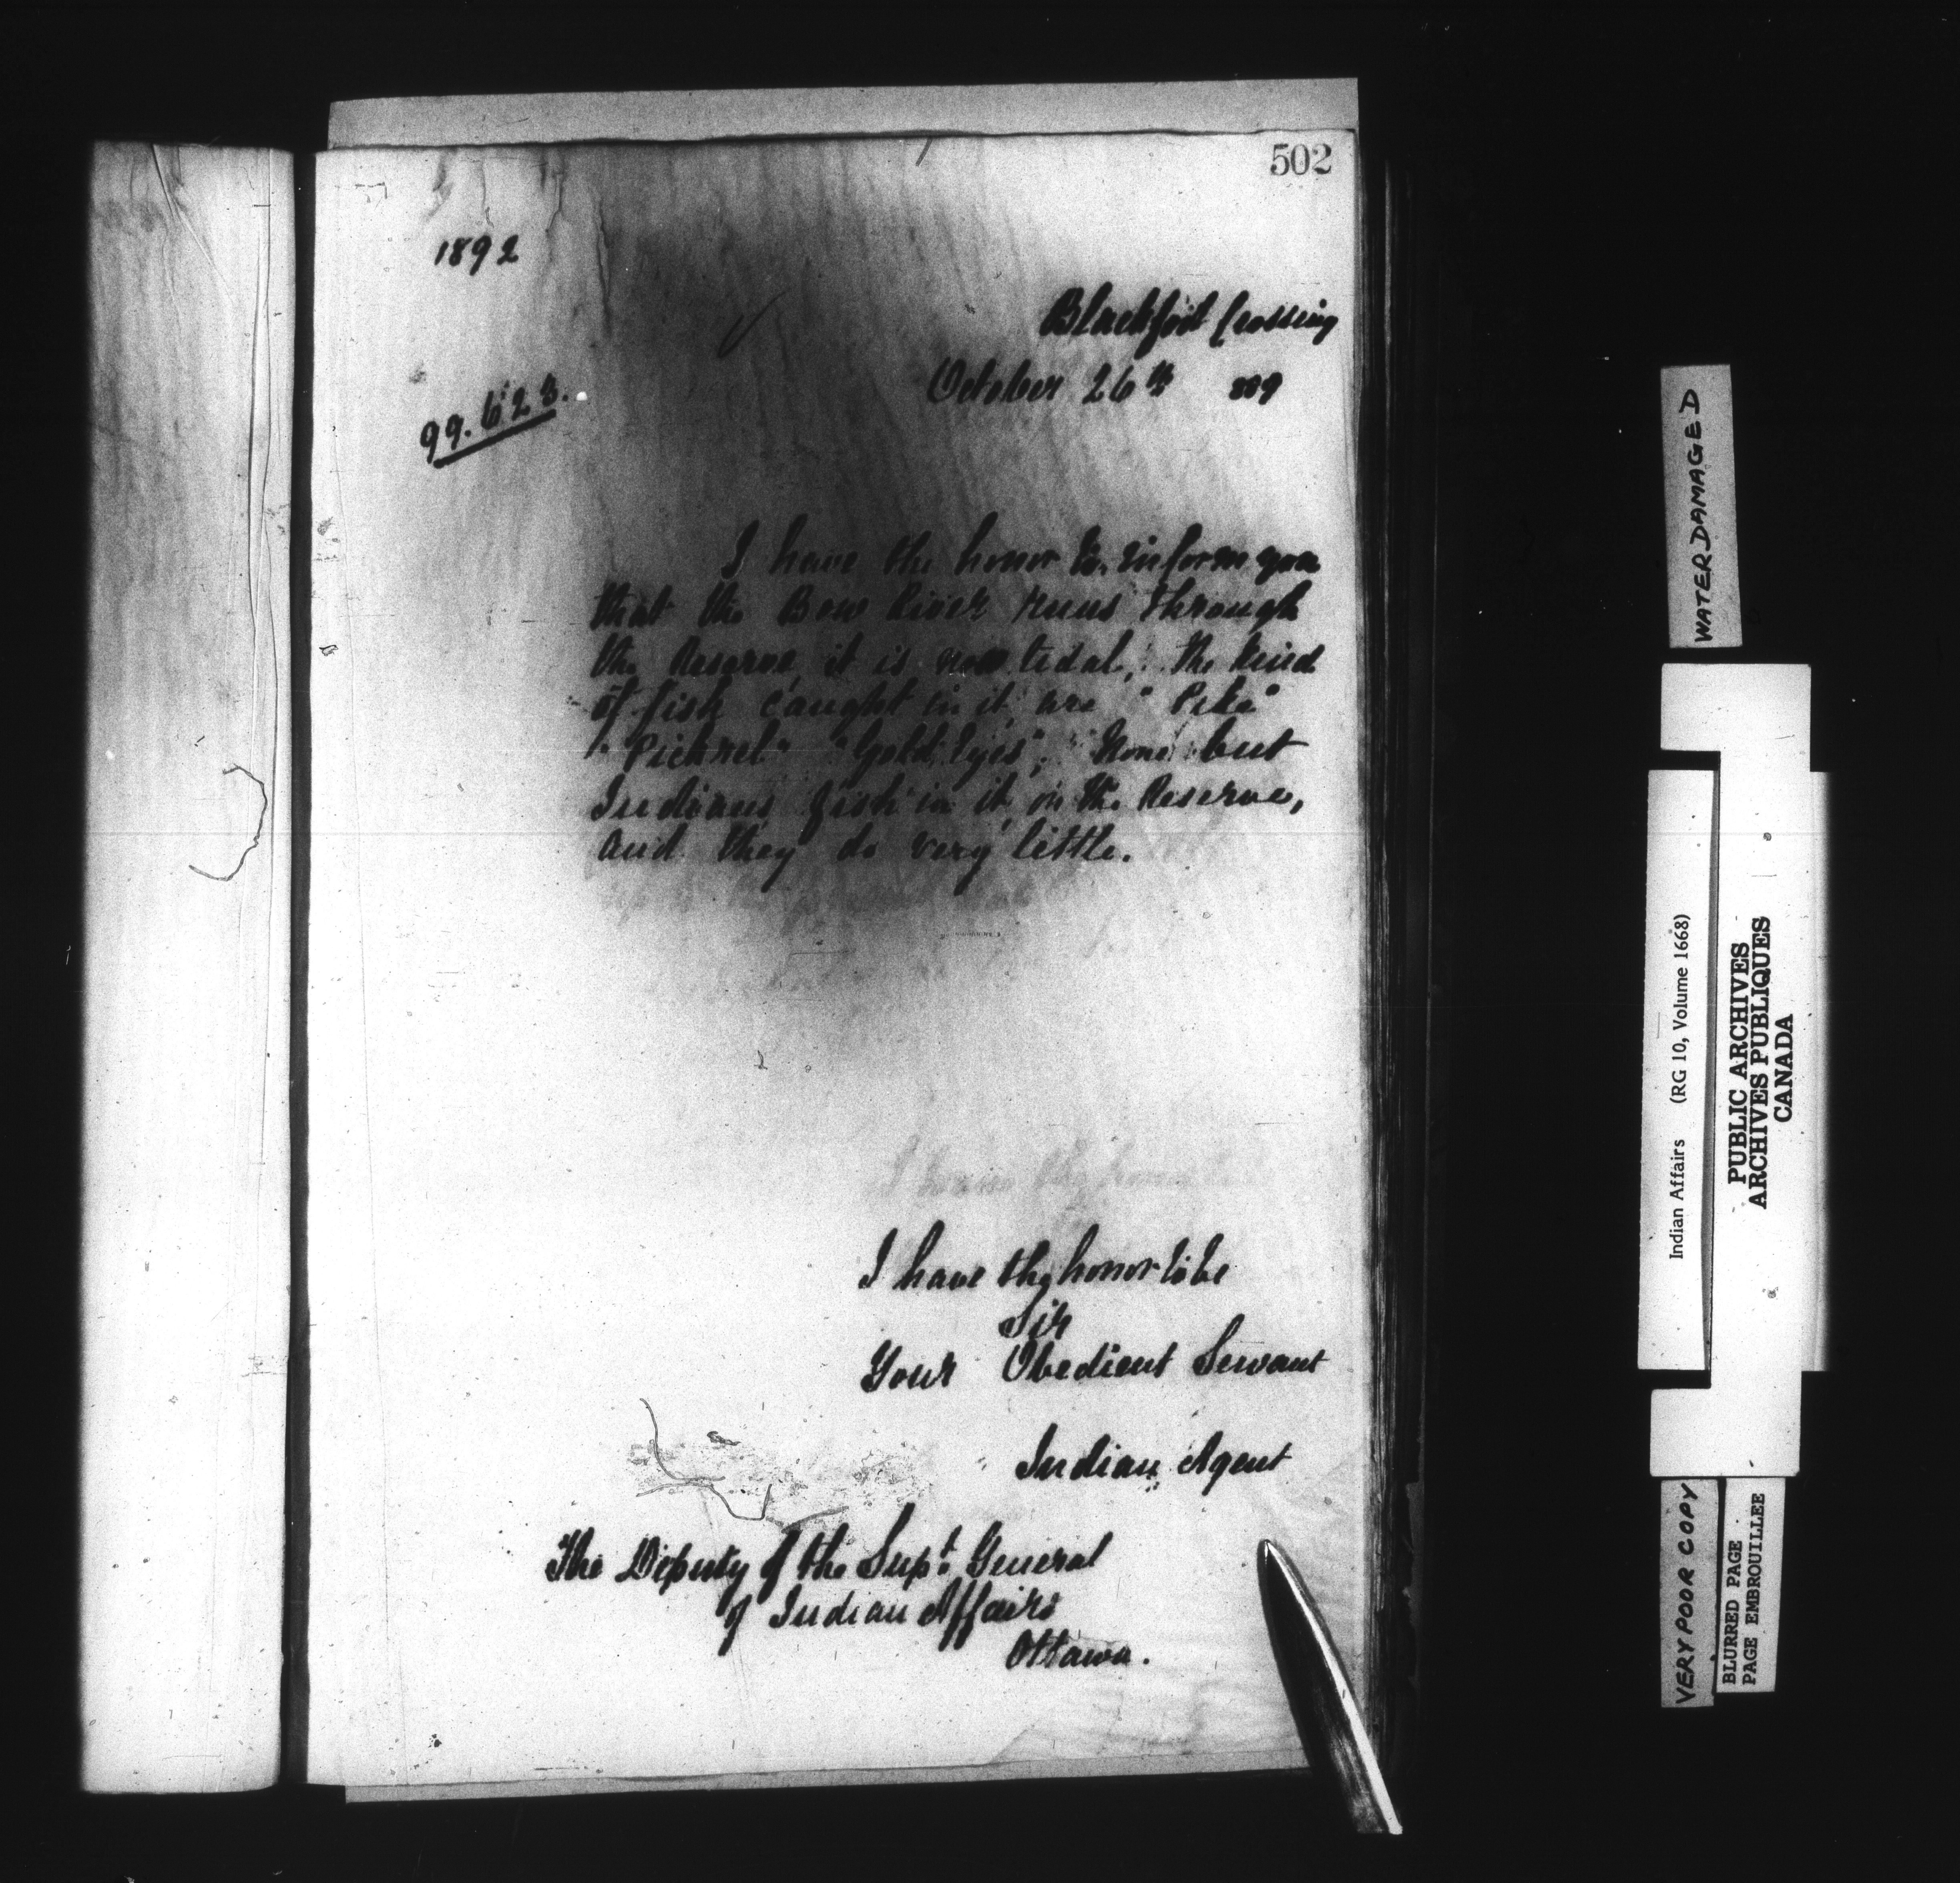 502
1892
Blackfoot Crossing
October 26th 889
99.623.
I have the honor to inform you
that the Bow River runs through
the Reserve, it is non tidal, the kind
of fish caught in it, are "Pike"
"Pickrel" "Gold Eyes", None but
Indians fish in it, on the Reserve,
and they do very little.
I have the honor to be
Sir
Your Obedient Servant
Indian Agent
The Deputy of the Supt. General
of Indian Affairs
Ottawa.
WATER DAMAGED
Indian Affairs (RG 10, Volume 1668)
PUBLIC ARCHIVES
ARCHIVES PUBLIQUES
CANADA
VERY POOR COPY
BLURRED PAGE
PAGE EMBROUILLEE